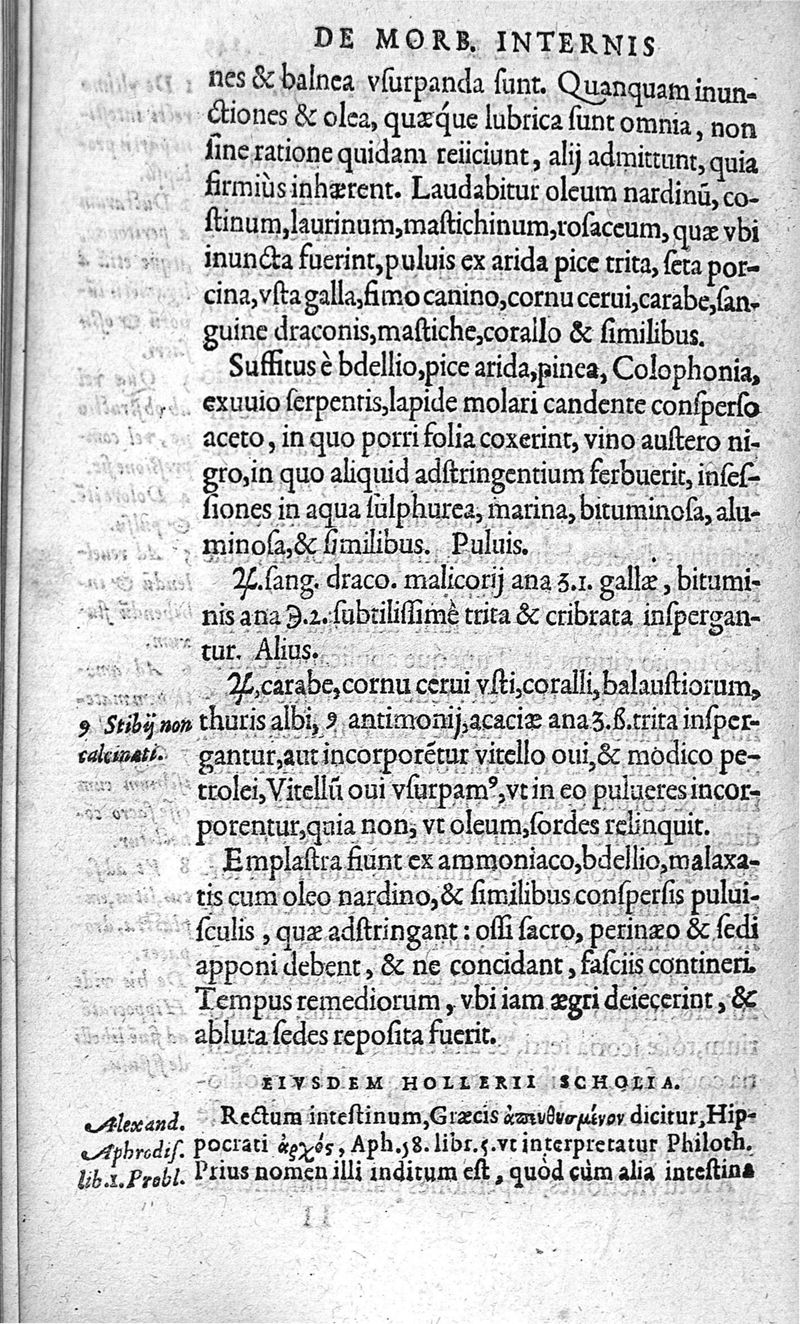 DE MORB. INTERNIS
nes & balnea vſurpanda ſunt. Quanquam inun-
ctiones & olea, quæq́ue lubrica ſunt omnia, non
ſine ratione quidam reiiciunt, alij admittunt, quia
firmiùs inhærent. Laudabitur oleum nardinũ, co-
ſtinum, laurinum, maſtichinum, roſaceum, quæ vbi
inuncta fuerint, puluis ex arida pice trita, ſeta por-
cina, vſta galla, fimo canino, cornu cerui, carabe, ſan-
guine draconis, maſtiche, corallo & ſimilibus.
Suffitus è bdellio, pice arida, pinea, Colophonia,
exuuio ſerpentis, lapide molari candente conſperſo
aceto, in quo porri folia coxerint, vino auſtero ni-
gro, in quo aliquid adſtringentium ferbuerit, inſeſ-
ſiones in aqua ſulphurea, marina, bituminoſa, alu-
minoſa, & ſimilibus. Puluis.
℞. ſang. draco. malicorij ana ʒ.1. gallæ, bitumi-
nis ana ℈.2. ſubtiliſſimè trita & cribrata inſpergan-
tur. Alius.
℞, carabe, cornu cerui vſti, coralli, balauſtiorum,
thuris albi, 9 antimonij, acaciæ ana ʒ.ß. trita inſper-
9 Stibij non
calcinati.
gantur, aut incorporẽtur vitello oui, & modico pe-
trolei, Vitellũ oui vſurpamꝰ, vt in eo pulueres incor-
porentur, quia non, vt oleum, ſordes relinquit.
Emplaſtra fiunt ex ammoniaco, bdellio, malaxa-
tis cum oleo nardino, & ſimilibus conſperſis pului-
ſculis, quæ adſtringant: oſſi ſacro, perinæo & ſedi
apponi debent, & ne concidant, faſciis contineri.
Tempus remediorum, vbi iam ægri deiecerint, &
abluta ſedes repoſita fuerit.
EIVSDEM HOLLERII SCHOLIA.
Rectum inteſtinum, Græcis ἀπευθυσμένον dicitur, Hip-
Alexand.
Aphrodiſ.
lib.1. Probl.
pocrati ἀρχός, Aph.58. libr.5. vt interpretatur Philoth.
Prius nomen illi inditum eſt, quòd cùm alia inteſtina